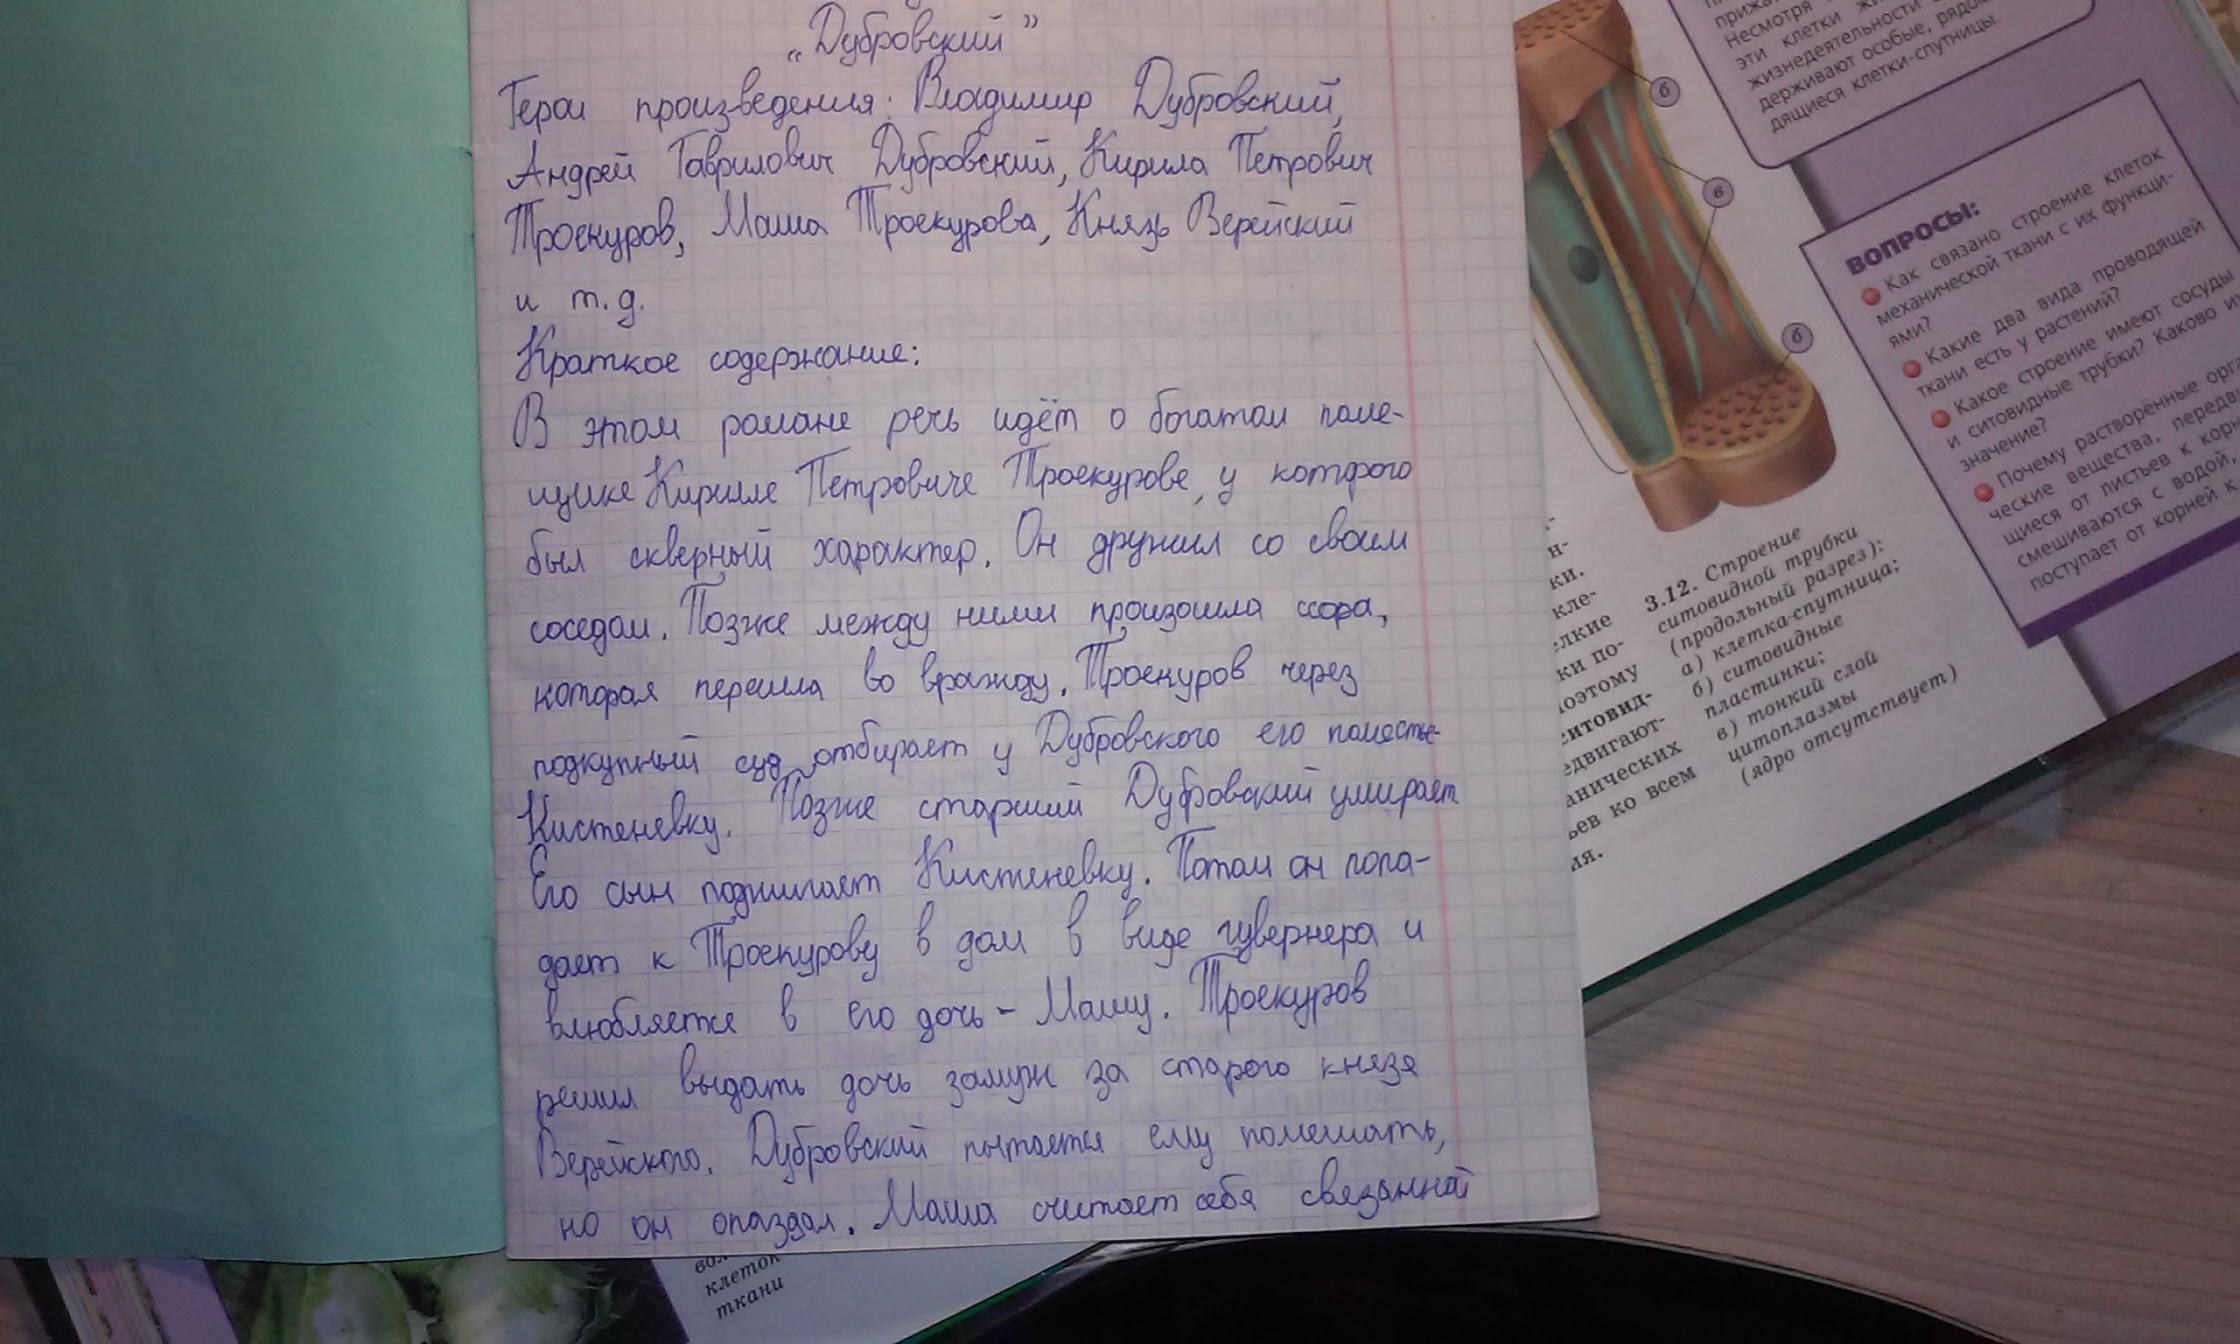 „Дубровский”
Герои произведения: Владимир Дубровский,
Андрей Гаврилович Дубровский, Кирила Петрович
Троекуров, Маша Троекурова, Князь Верейский
и т.д.
Краткое содержание:
В этом романе речь идёт о богатом поме-
щике Кирилле Петровиче Троекурове, у которого
был скверный характер. Он дружил со своим
соседом. Позже между ними произошла ссора,
которая перешла во вражду. Троекуров через
подкупный суд отбирает у Дубровского его поместье
Кистеневку. Позже старший Дубровский умирает
Его сын поджигает Кистеневку. Потом он попа-
дает к Троекурову в дом в виде гувернера и
влюбляется в его дочь - Машу. Троекуров
решил выдать дочь замуж за старого князя
Верейского. Дубровский пытается ему помешать,
но он опоздал. Маша считает себя связанной
Несмотря
эти клетки
жизнедеятельности
держивают особые, рядом
дящиеся клетки-спутницы.
б
в
б
ВОПРОСЫ:
Как связано строение клеток
механической ткани с их функци-
ями?
Какие два вида проводящей
ткани есть у растений?
Какое строение имеют сосуды
и ситовидные трубки? Каково их
значение?
Почему растворённые орга
ческие вещества, передви
щиеся от листьев к корн
смешиваются с водой,
поступает от корней к
3.12. Строение
ситовидной трубки
(продольный разрез):
а) клетка-спутница;
б) ситовидные
пластинки;
в) тонкий слой
цитоплазмы
(ядро отсутствует)
н-
ки.
кле-
лкие
ки по-
поэтому
ситовид-
едвигают-
анических
ьев ко всем
ия.
клеток
ткани